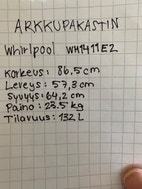 ARKKUPAKASTIN
Whirlpool WH1411E2
Korkeus: 86,5 cm
Leveys: 57,3 cm
Syvyys: 64,2 cm
Paino: 28.5 kg
Tilavuus: 132 L